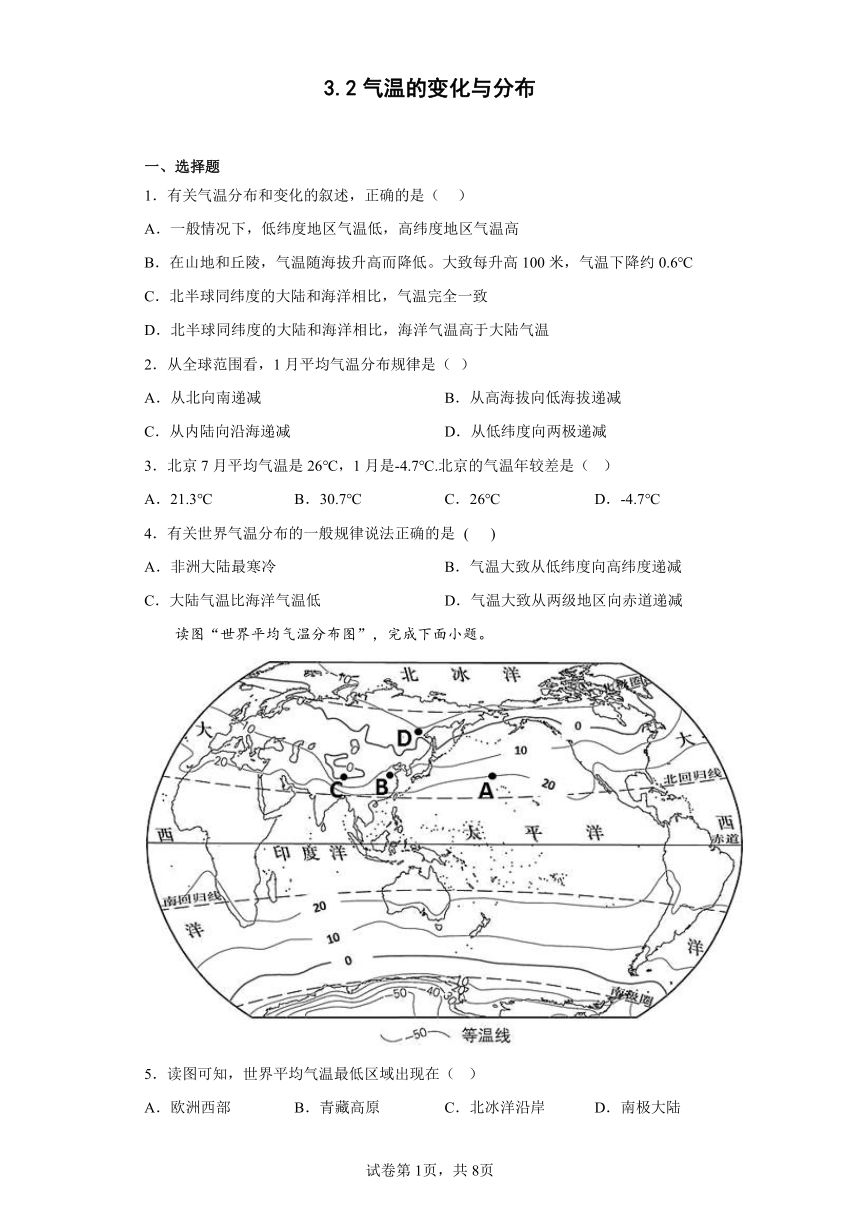 3.2气温的变化与分布
一、选择题
1．有关气温分布和变化的叙述，正确的是（ ）
A．一般情况下，低纬度地区气温低，高纬度地区气温高
B．在山地和丘陵，气温随海拔升高而降低。大致每升高100米，气温下降约0.6℃
C．北半球同纬度的大陆和海洋相比，气温完全一致
D．北半球同纬度的大陆和海洋相比，海洋气温高于大陆气温
2．从全球范围看，1月平均气温分布规律是（ ）
A．从北向南递减 B．从高海拔向低海拔递减
C．从内陆向沿海递减 D．从低纬度向两极递减
3．北京7月平均气温是26℃，1月是-4.7℃.北京的气温年较差是（ ）
A．21.3℃ B．30.7℃ C．26℃ D．-4.7℃
4．有关世界气温分布的一般规律说法正确的是 ( )
A．非洲大陆最寒冷 B．气温大致从低纬度向高纬度递减
C．大陆气温比海洋气温低 D．气温大致从两级地区向赤道递减
读图“世界平均气温分布图”，完成下面小题。
北 冰 洋
北极圈
大 D 0 大
10
20 C B A 20 北回归线
西 太 平 洋 西
赤道
印 度 洋
南回归线
20
洋 10 洋
0
-50 -40 南极圈
-50 等温线
5．读图可知，世界平均气温最低区域出现在（ ）
A．欧洲西部 B．青藏高原 C．北冰洋沿岸 D．南极大陆
试卷第1页，共8页